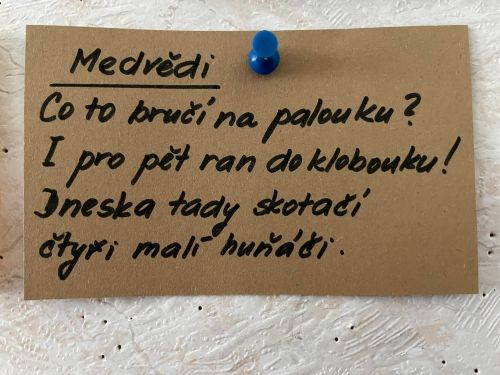 Medvědi
Co to bručí na palouku?
I pro pět ran do klobouku!
Dneska tady skotačí
čtyři malí huňáči.